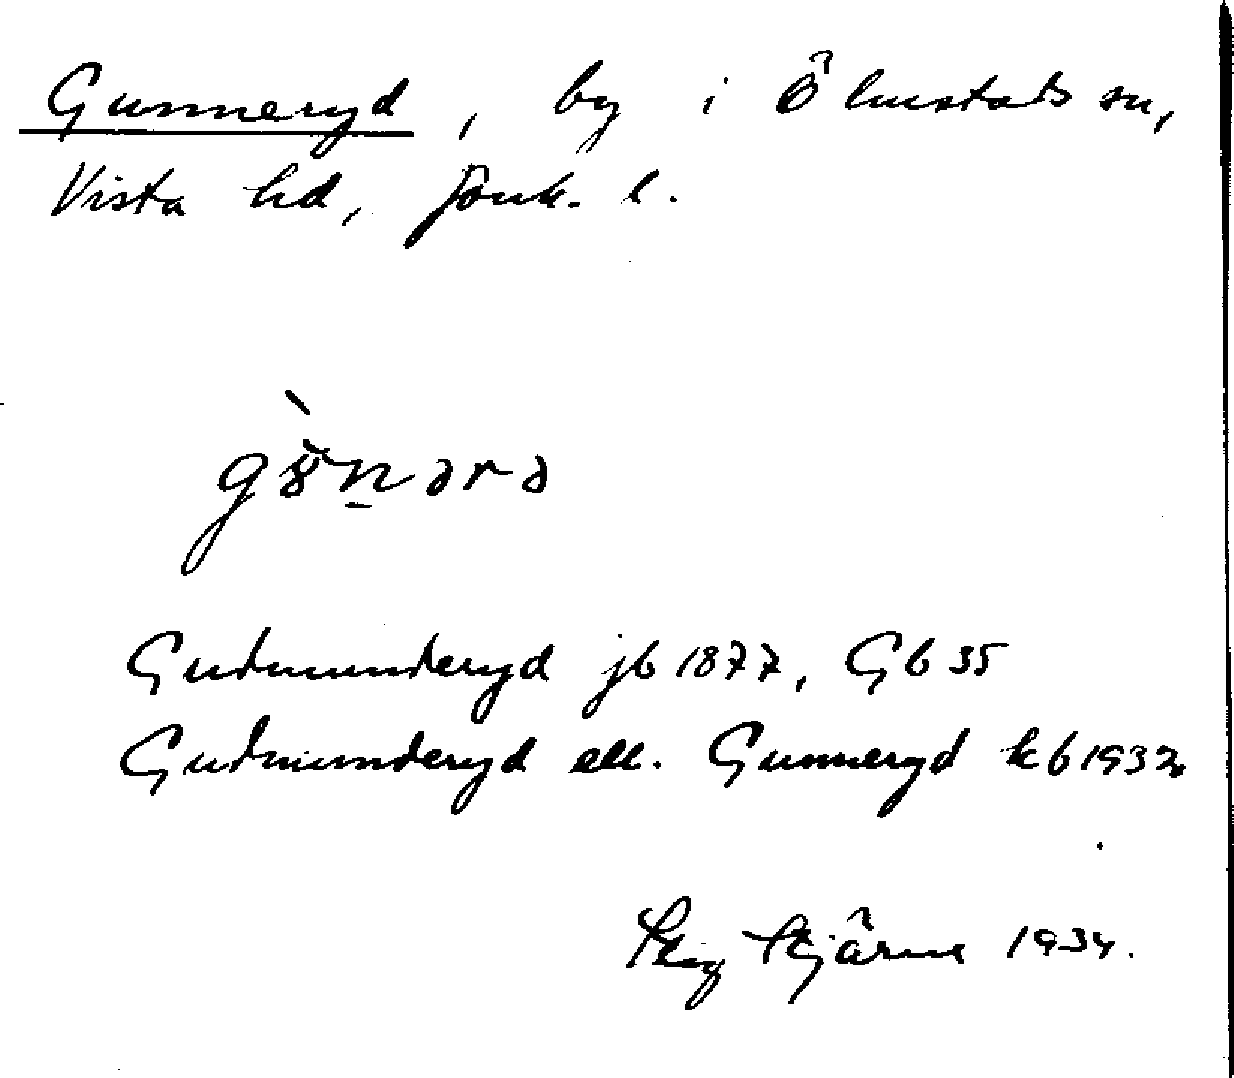 Gunneryd, by i Ölmstads sn,
Vista hd, Jönk. l.
Gudmunderyd jb 1877, Gb 35
Gudmunderyd ell. Gunneryd kb 1932
Stig Stjärne 1934.